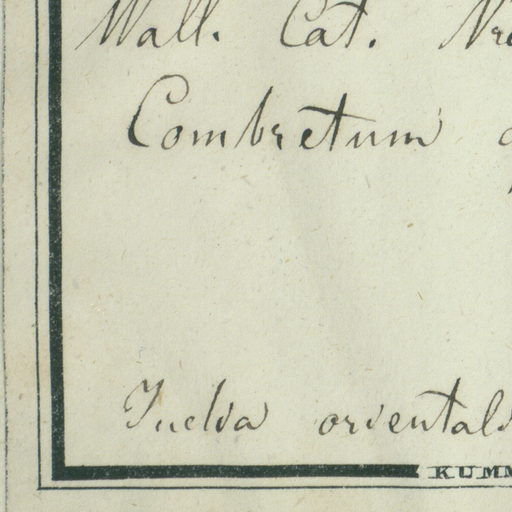 Wall. Cat. Nro
Combretum
India orientalis
KUMM